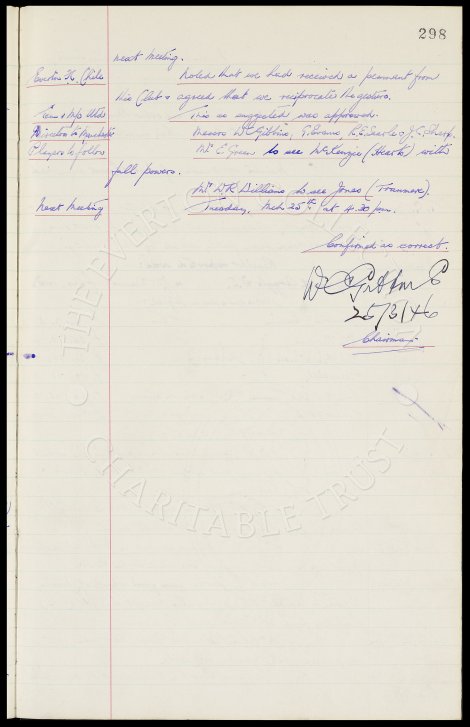 298
next Meeting.
Everton F.C. Chile noted that we had received a pennant from
this Club & agreed that we reciprocate the gesture.
Team & Mtg Wed This as suggested was approved.
Director to Manchester Messrs W.C. Gibbins, G. Evans, R.E. Searle & J.C. Sharp.
Players to follow Mr. E. Green to see McKenzie (Hearts) with
full powers.
Mr. W.R. Williams to see Jones (Tranmere).
Next Meeting Tuesday, Mch 25th at 4.30 pm.
Confirmed as correct.
W C Gibbins
25/3/46
Chairman.
THE EVERTON
CHARITABLE TRUST